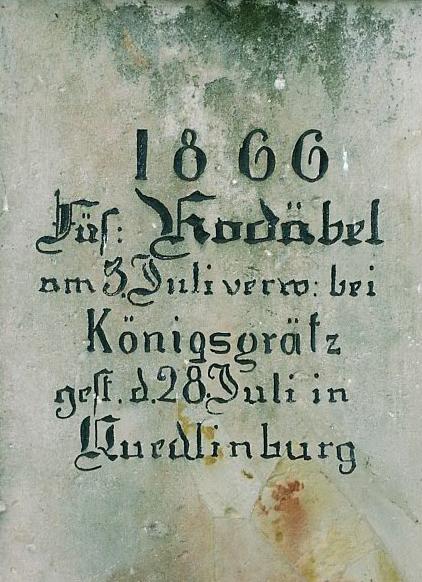 1866
Füs: Rodäbel
am 3. Juli verw: bei
Königsgrätz
gest. d. 28. Juli in
Quedlinburg